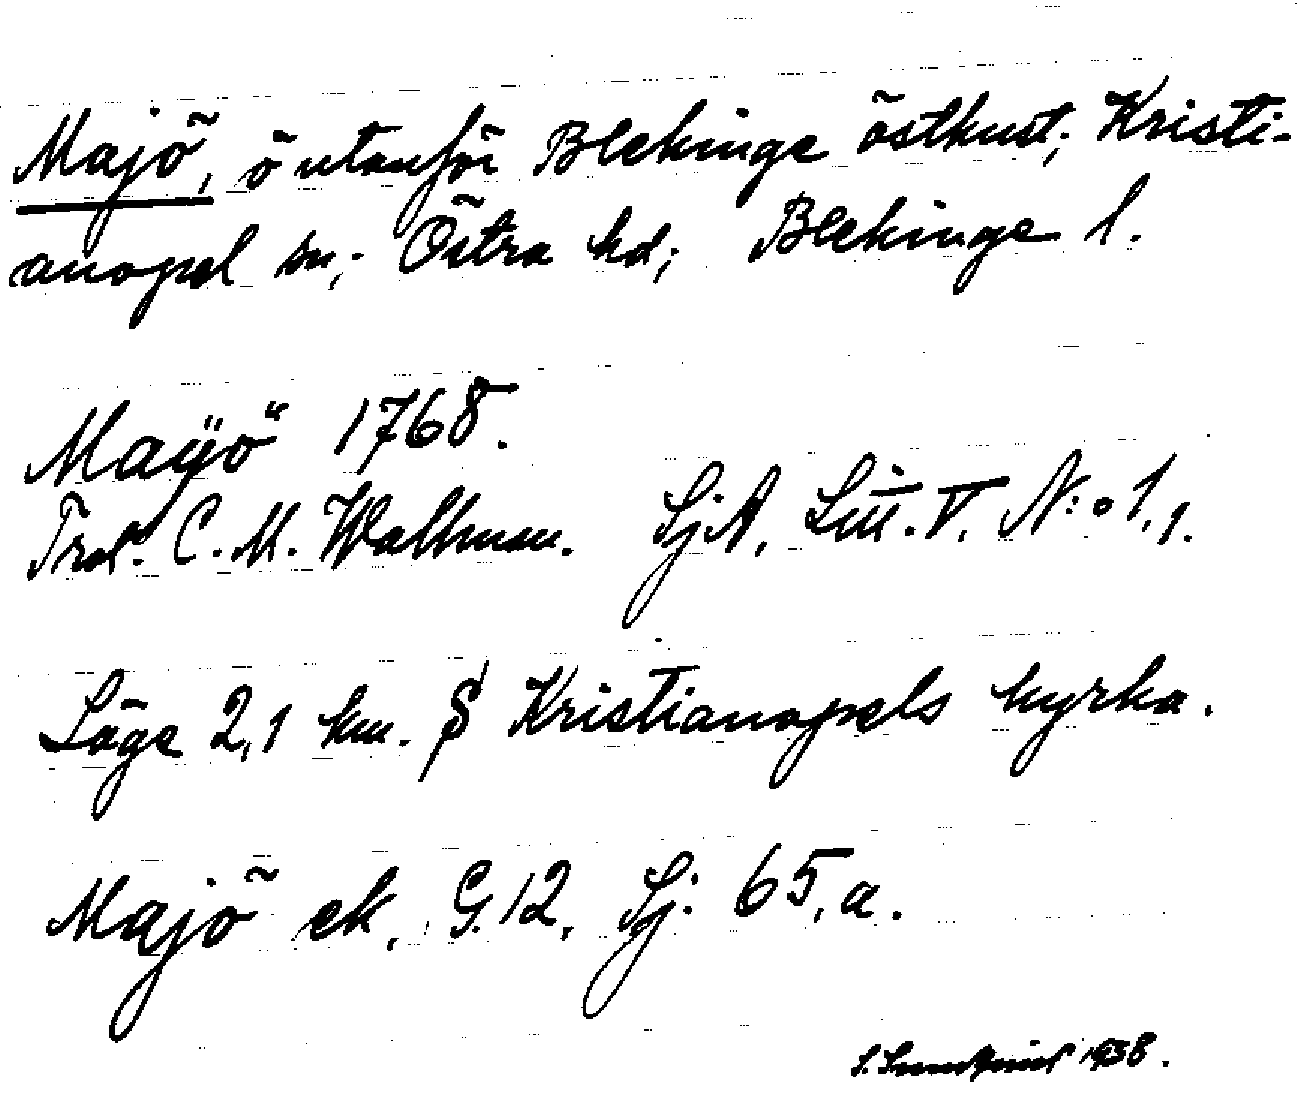 Majö, ö utanför Blekinge östkust; Kristi-
anopel sn; Östra hd; Blekinge l.
Maÿö 1768.
C. M. Wallman. SjA. Litt. V. N:o 1,1.
Läge 2,1 km. S Kristianopels kyrka.
Majö ek. G.12. Sj: 65,a.
1938.